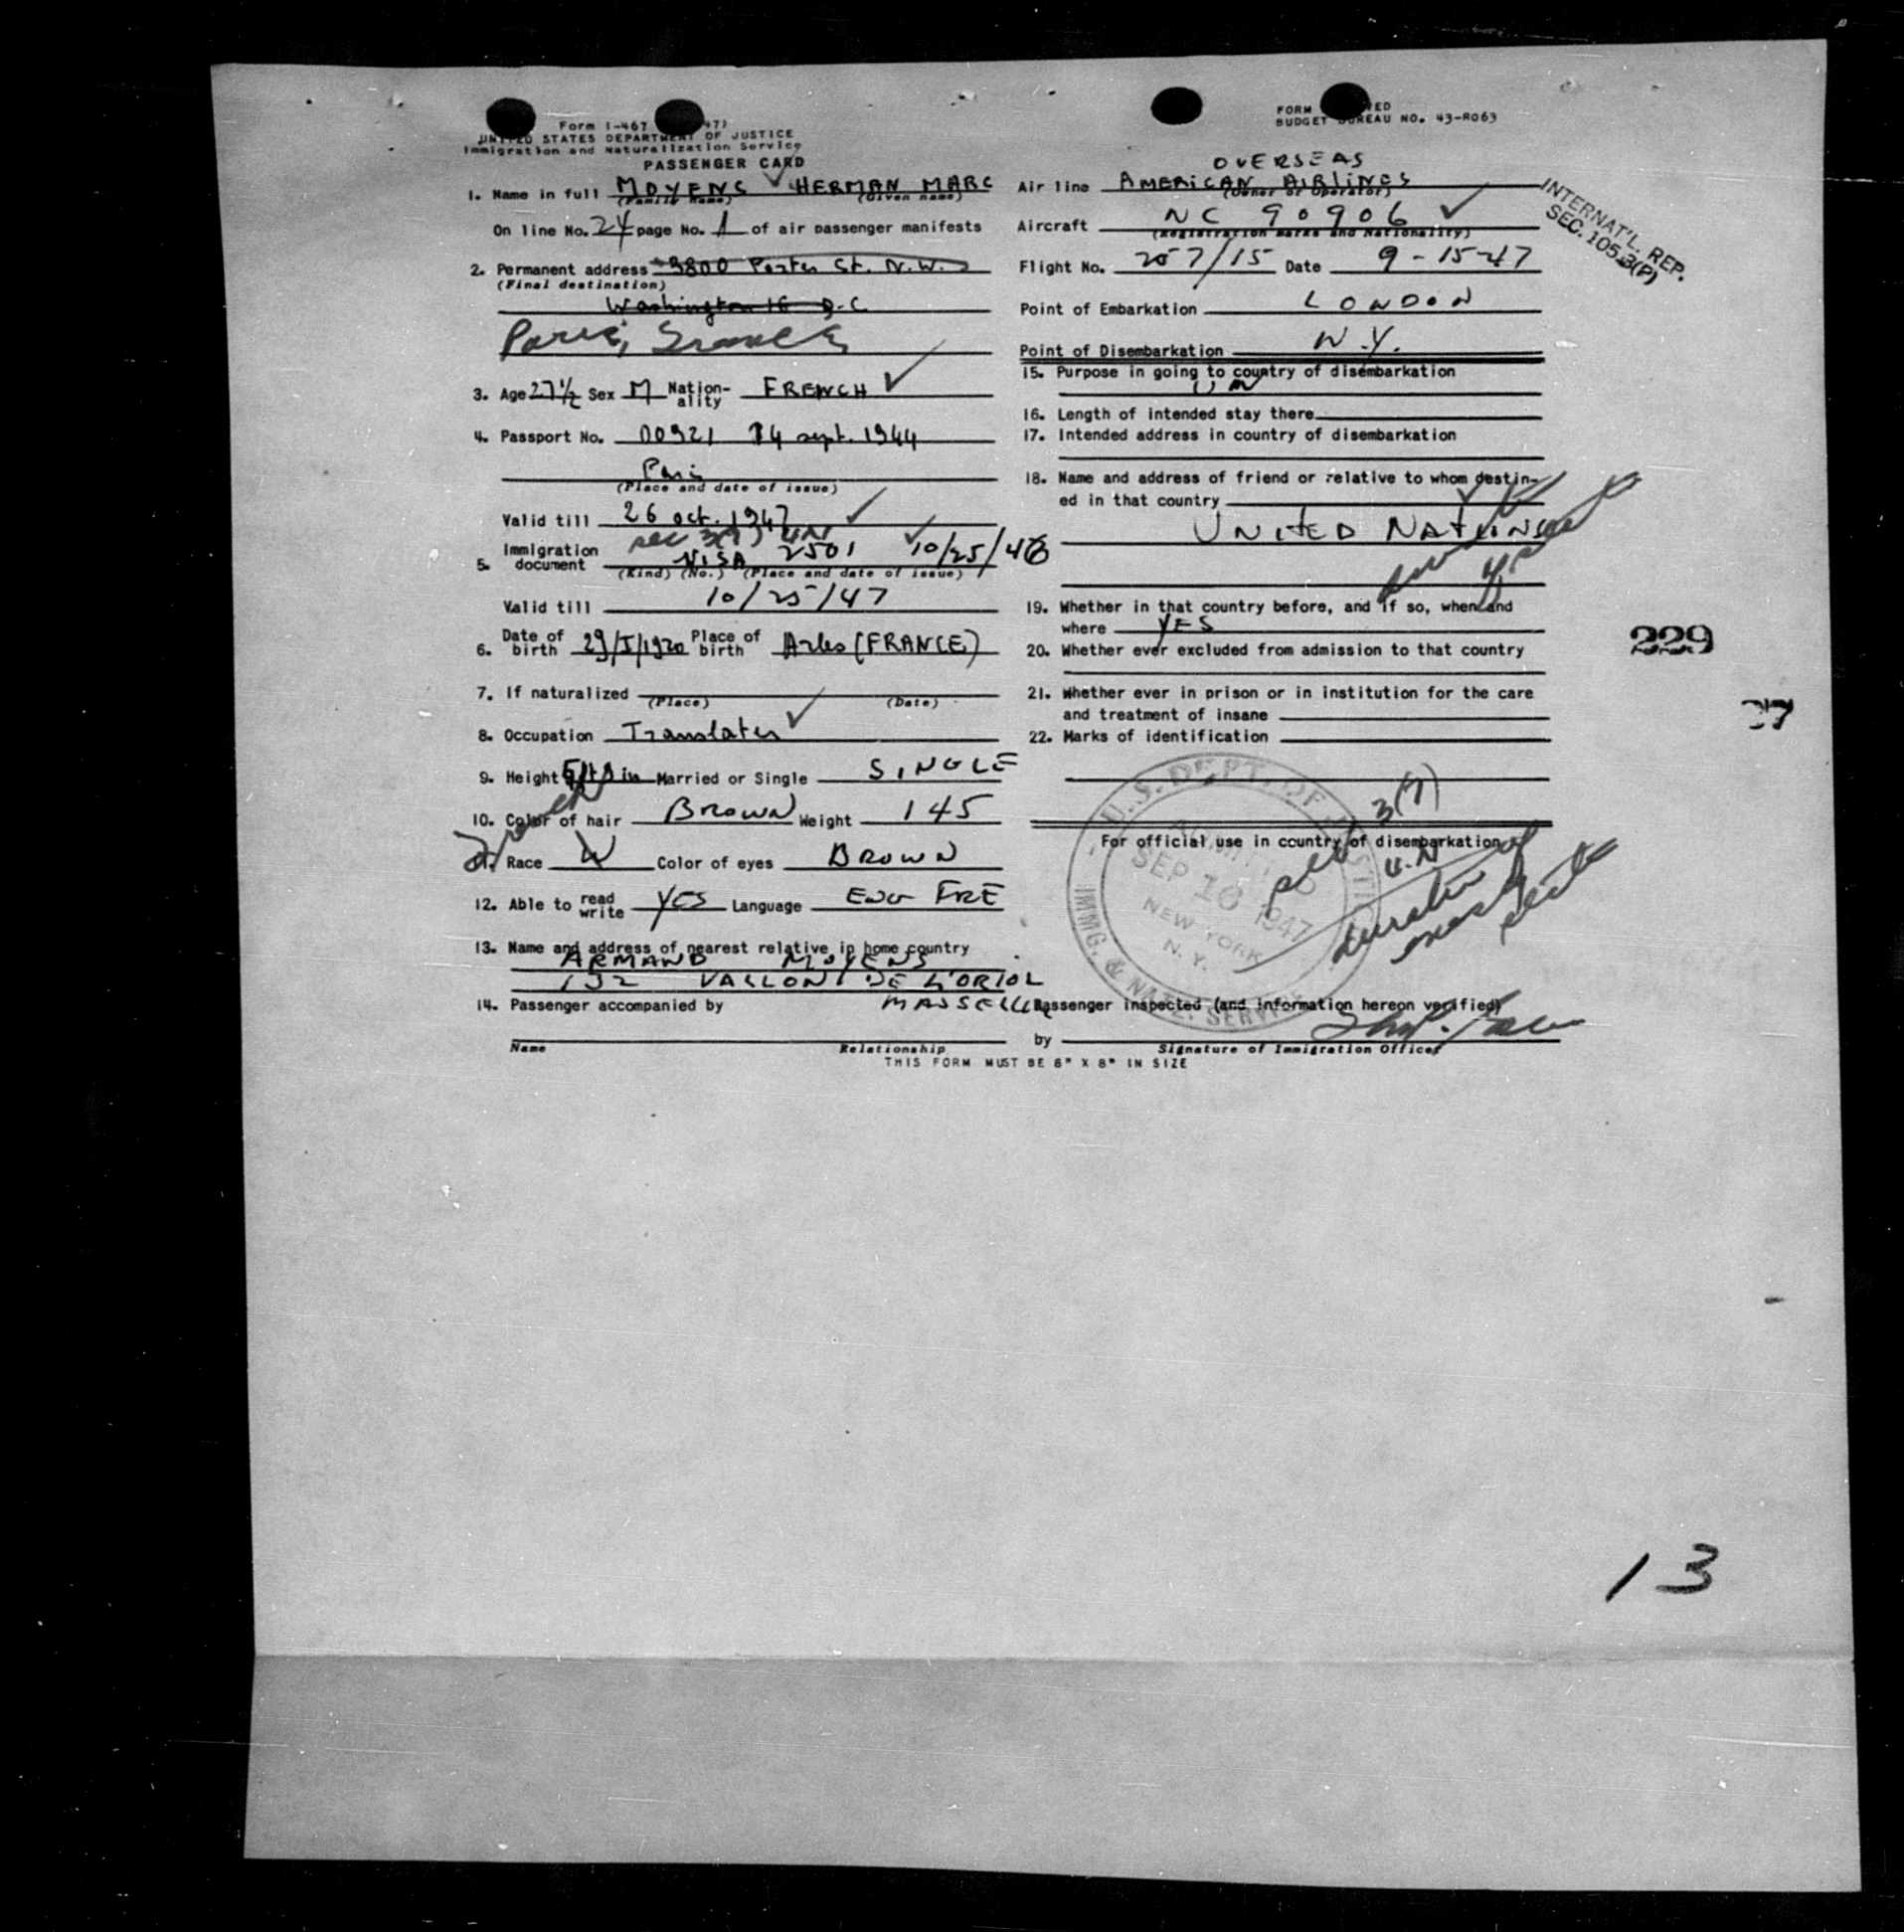 Form I-467 47)
UNITED STATES DEPARTMENT OF JUSTICE
Immigration and Naturalization Service
PASSENGER CARD
1. Name in full MOYENS HERMAN MARC
(Family name) (Given name)
On line No. 24 page No. 1 of air passenger manifests
2. Permanent address 3800 Porter St. N.W.
(Final destination)
Washington 16 D.C
Paris, France
3. Age 27 1/2 Sex M Nationality FRENCH
4. Passport No. 00921 14 sept. 1944
Paris
(Place and date of issue)
Valid till 26 oct. 1947
sec 3(7) UN
5. Immigration document VISA 2501 10/25/46
(Kind) (No.) (Place and date of issue)
Valid till 10/25/47
6. Date of birth 29/I/1920 Place of birth Arles (FRANCE)
7. If naturalized
(Place) (Date)
8. Occupation Translater
9. Height 5 ft in Married or Single SINGLE
10. Color of hair BROWN Weight 145
French
11. Race W Color of eyes BROWN
12. Able to read write YES Language ENG FRE
13. Name and address of nearest relative in home country
ARMAND MOYENS
132 VALLON DE L'ORIOL
MASSEILLE
14. Passenger accompanied by
Name Relationship
THIS FORM MUST BE 6" X 8" IN SIZE
FORM ED
BUDGET BUREAU NO. 43-R063
OVERSEAS
Air line AMERICAN AIRLINES
(Owner or Operator)
Aircraft NC 90906
(Registration marks and Nationality)
Flight No. 257/15 Date 9-15-47
Point of Embarkation LONDON
Point of Disembarkation N.Y.
15. Purpose in going to country of disembarkation
UN
16. Length of intended stay there
17. Intended address in country of disembarkation
18. Name and address of friend or relative to whom destin-
ed in that country
UNITED NATIONS
duration of status
19. Whether in that country before, and if so, when and
where YES
20. Whether ever excluded from admission to that country
21. Whether ever in prison or in institution for the care
and treatment of insane
22. Marks of identification
For official use in country of disembarkation
sec 3(7)
U.N
duration of
status
U.S. DEPT. OF JUSTICE
ADMITTED
SEP 16 1947
NEW YORK
N. Y.
IMMG. & NATZ. SERVICE
Passenger inspected (and information hereon verified)
by
Signature of Immigration Officer
INTERNAT'L. REP.
SEC. 105.3(P)
229
37
13